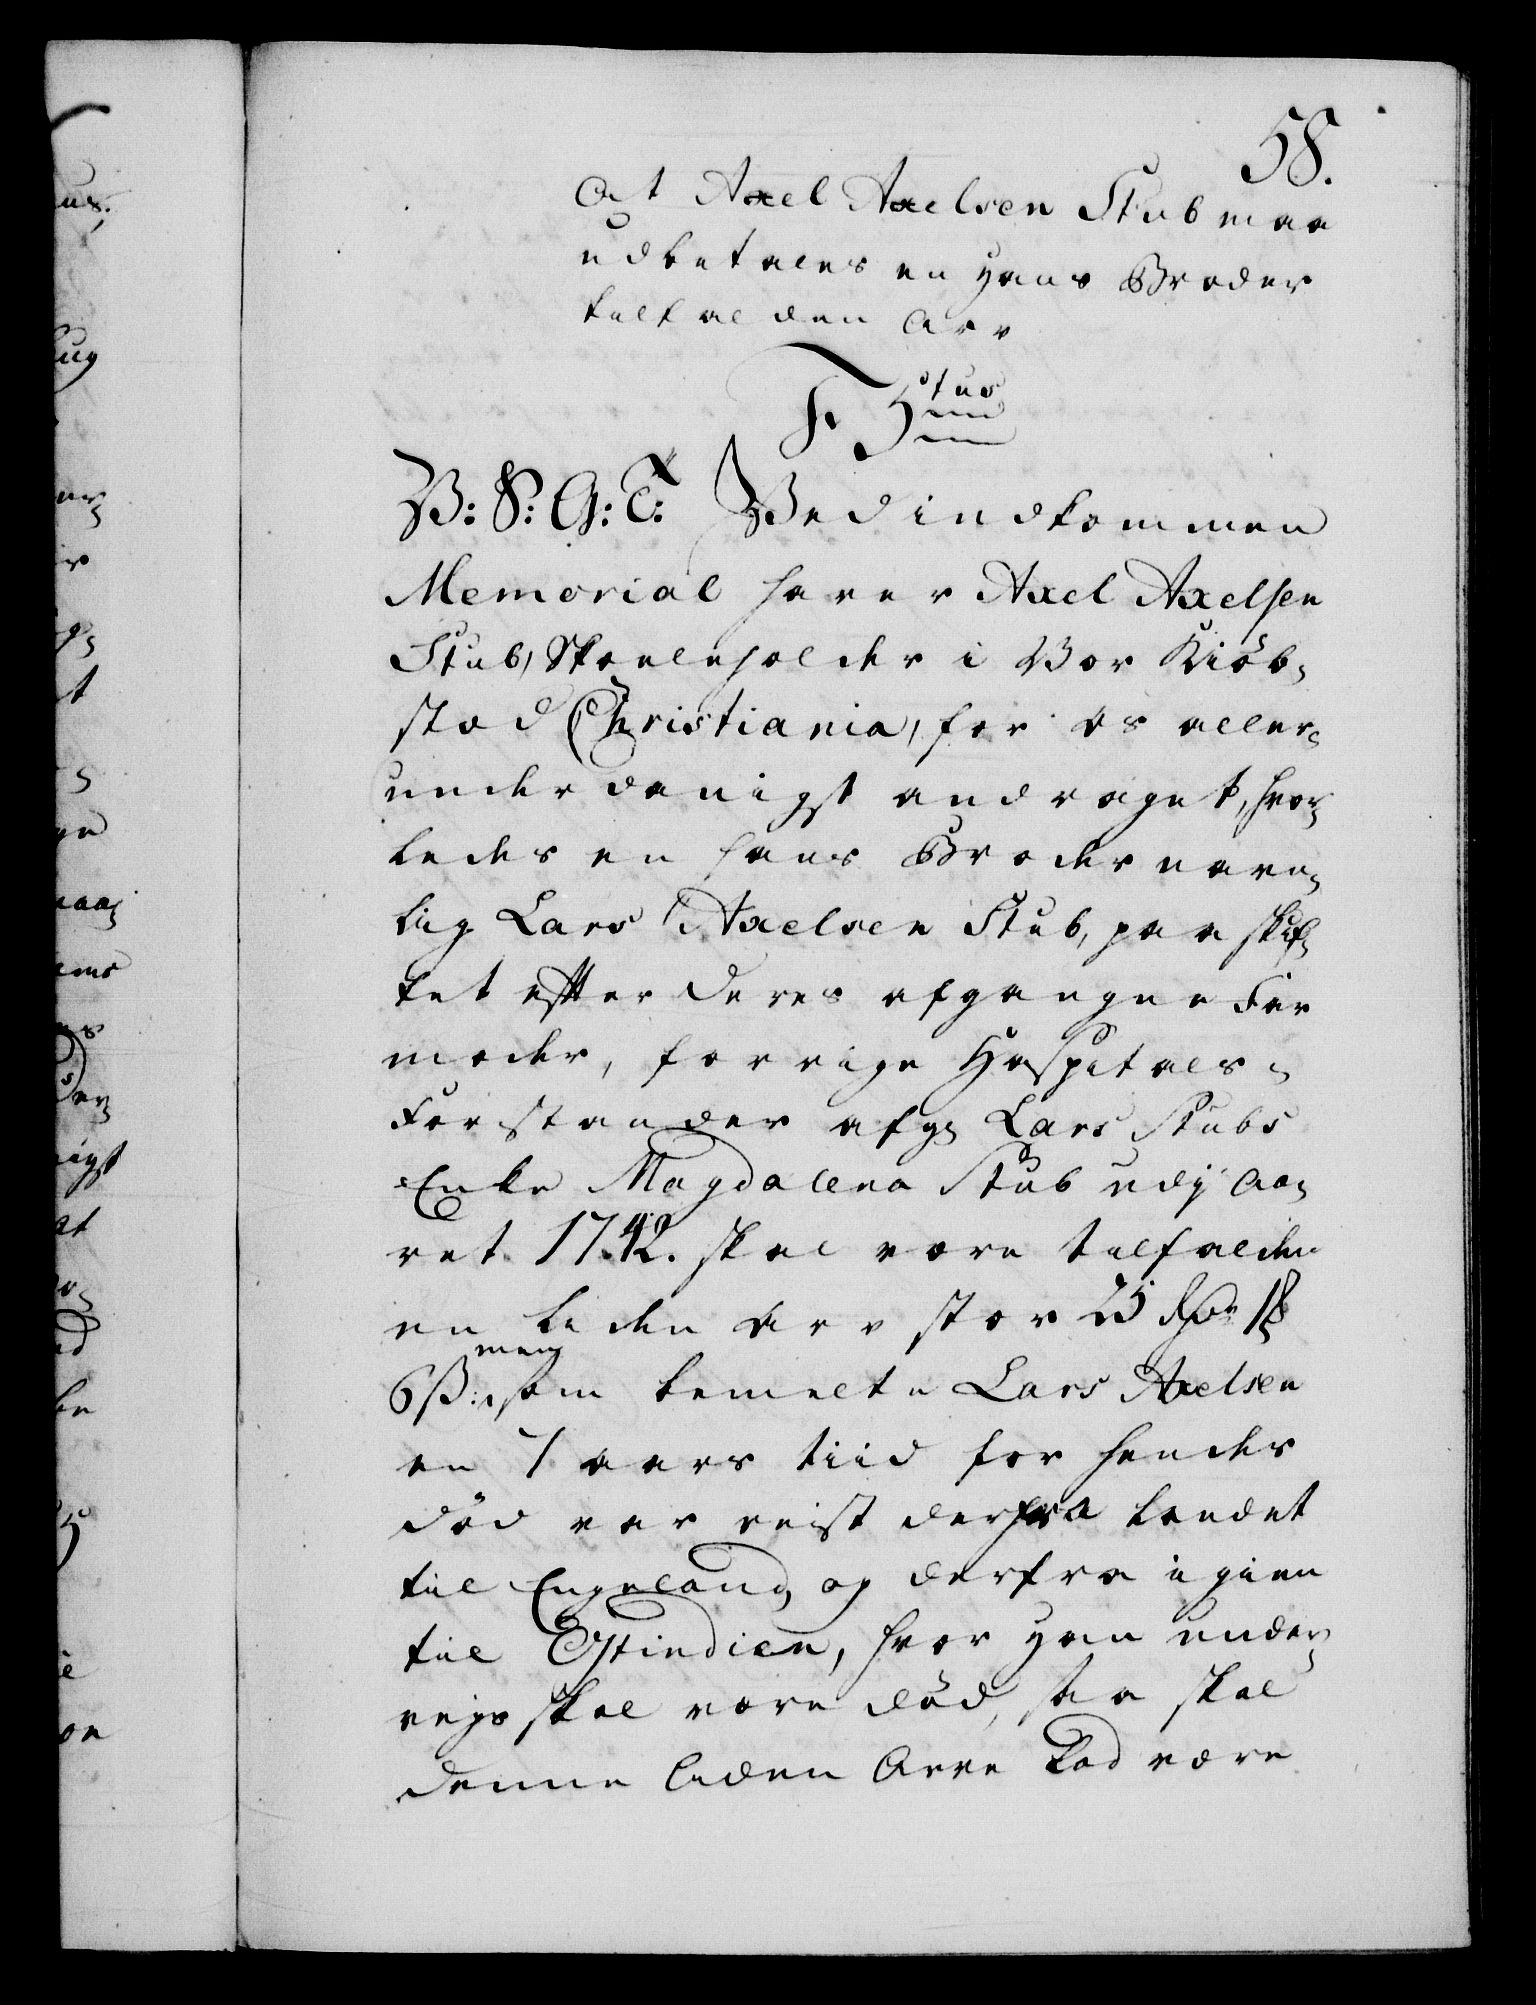 58.
At Axel Axelsen Stub maa
udbetales en hans Broder
tilfalden Arv
F 5tus
B: S: G: T: Ved indkommen
Memorial haver Axel Axelsen
Stub, Skoeleholder i Vor Kiøb-
stad Christiania, for os aller-
underdanigst andraget, hvor-
ledes en hans Broder navn-
lig Lars Axelsen Stub, paa skif-
tet efter deres afgangne Far
moder, forrige Hospitals-
Forstander afg: Lars Stubs
Enke Magdalena Stub udj Aa-
ret 1742. skal være tilfalden
en liden arv stor 25 Rdr 1 ß
6 ß: men som bemelte Lars Axelsen
en 7 aars tiid for hendes
død var reist derfra landet
til Engeland, og derfra igien
til Ostindien, hvor han under-
vejs skal være død, saa skal
denne liden Arve Lod være